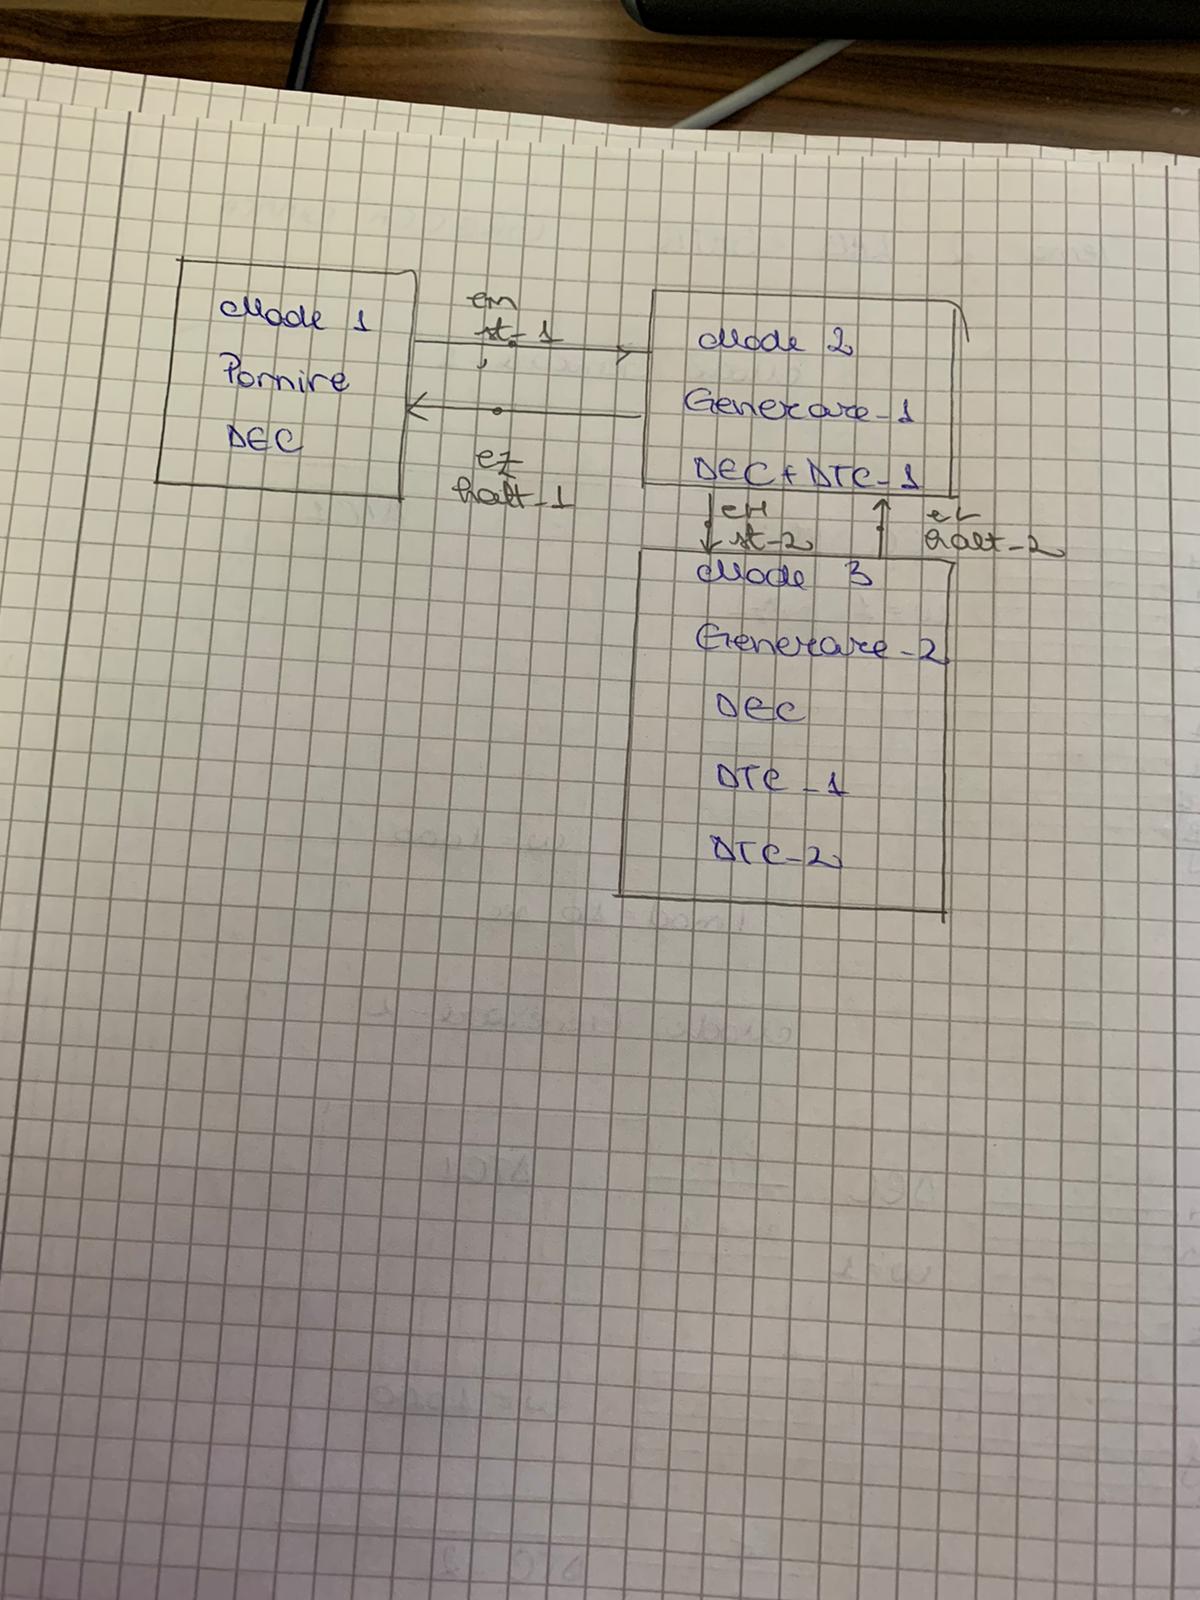 Mode 1
Pornire
DEC
en
st-1
ez
halt-1
Mode 2
Generare-1
DEC + DTC-1
st-2
halt-2
Mode 3
Generare-2
DEC
DTC-1
DTC-2